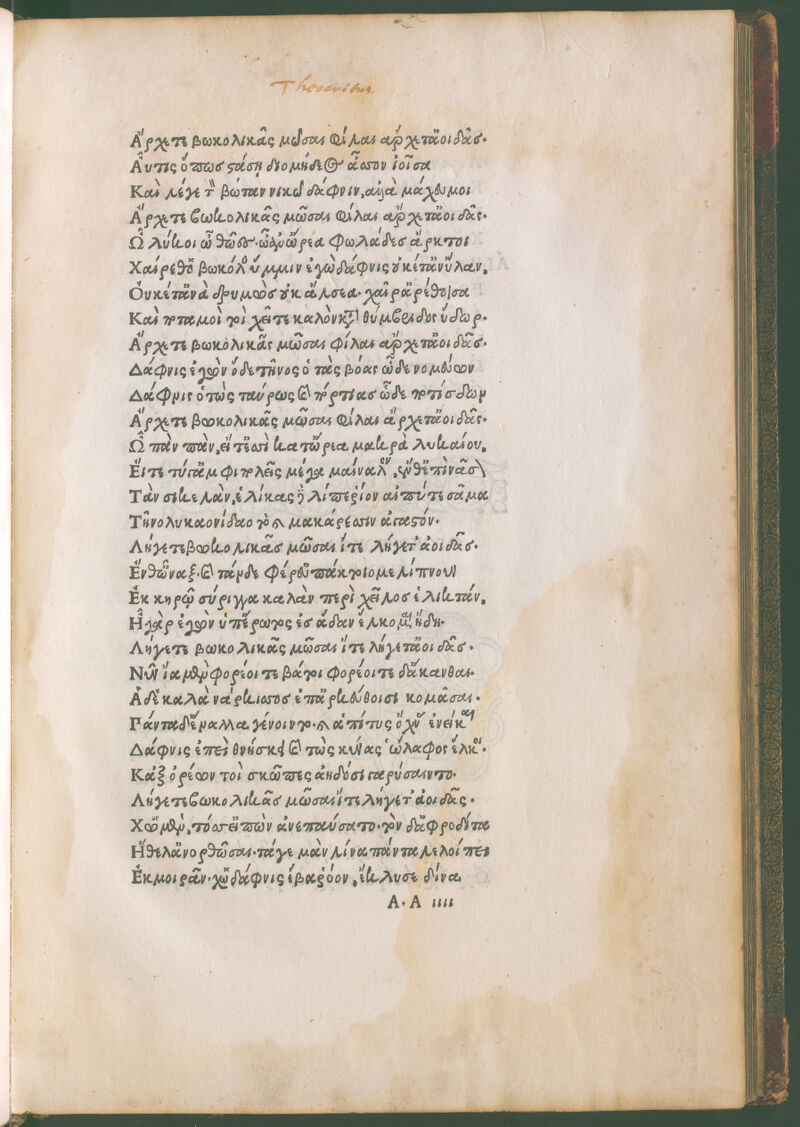 Theocritus.
Ἄρχετε βωκολικᾶς μῶσαι φίλαι ἄρχετ᾽ ἀοιδᾶς·
Αὖτις ὅπως στάσῃ διομήδεος ἆσσον ἰοῖσα
Καὶ λέγε τὸν βώταν νικῶ δάφνιν, ἀλλὰ μάχου μοι
Ἄρχετε βωκολικᾶς μῶσαι φίλαι ἄρχετ᾽ ἀοιδᾶς·
Ὦ λύκοι ὦ θῶες· ὦ ἀν᾽ ὤρεα φωλάδες ἄρκτοι
Χαίρεθ᾽ ὁ βωκόλος ὔμμιν ἐγὼ δάφνις οὐκέτ᾽ ἀν᾽ ὕλαν,
Οὐκέτ᾽ ἀνὰ δρυμὼς οὐκ ἄλσεα· χαῖρ᾽ ἀρέθοισα
Καὶ ποταμοὶ τοὶ χεῖτε καλὸν κατὰ θύμβριδος ὕδωρ·
Ἄρχετε βωκολικᾶς μῶσαι φίλαι ἄρχετ᾽ ἀοιδᾶς·
Δάφνις ἐγὼν ὅδε τῆνος ὁ τὰς βόας ὧδε νομεύων
Δάφνις ὁ τὼς ταύρως καὶ πόρτιας ὧδε ποτίσδων
Ἄρχετε βωκολικᾶς μῶσαι φίλαι ἄρχετ᾽ ἀοιδᾶς·
Ὦ πὰν πὰν, εἴτ᾽ ἐσσὶ κατ᾽ ὤρεα μακρὰ λυκαίου,
Εἴτε τύ γ᾽ ἀμφιπολεῖς μέγα μαίναλον, ἔνθ᾽ ἐπὶ νᾶσον
Τὰν σικελὰν, ἑλίκας δὲ λίπε ῥίον αἰπύ τε σᾶμα
Τῆνο λυκαονίδαο τὸ καὶ μακάρεσσιν ἀγαστόν·
Λήγετε βωκολικᾶς μῶσαι ἴτε λήγετ᾽ ἀοιδᾶς·
Ἔνθ᾽ ὦναξ· καὶ τάνδε φέρευ πακτοῖο μελίπνουν
Ἐκ κηρῶ σύριγγα καλὰν περὶ χεῖλος ἑλικτάν,
Ἦ γὰρ ἐγὼν ὑπ᾽ ἔρωτος ἐς ᾅδαν ἕλκομαι ἤδη·
Λήγετε βωκολικᾶς μῶσαι ἴτε λήγετ᾽ ἀοιδᾶς·
Νῦν ἴα μὲν φορέοιτε βάτοι φορέοιτε δ᾽ ἄκανθαι·
Ἁ δὲ καλὰ νάρκισσος ἐπ᾽ ἀρκεύθοισι κομᾶσαι·
Πάντα δ᾽ ἔναλλα γένοιντο· καὶ ἁ πίτυς ὄχνας ἐνείκαι
Δάφνις ἐπεὶ θνήσκει καὶ τὼς κύνας ὥλαφος ἕλκοι·
Κἠξ ὀρέων τοὶ σκῶπες ἀηδόσι γαρύσαιντο·
Λήγετε βωκολικᾶς μῶσαι ἴτε λήγετ᾽ ἀοιδᾶς·
Χὠ μὲν, τόσσ᾽ εἰπὼν ἀνεπαύσατο· τὸν δ᾽ ἀφροδίτα
Ἤθελ᾽ ἀνορθῶσαι· τά γε μὰν λίνα πάντα λελοίπει
Ἐκ μοιρᾶν· χὠ δάφνις ἔβα ῥόον, ἔκλυσε δίνα
Α·Α ιιιι